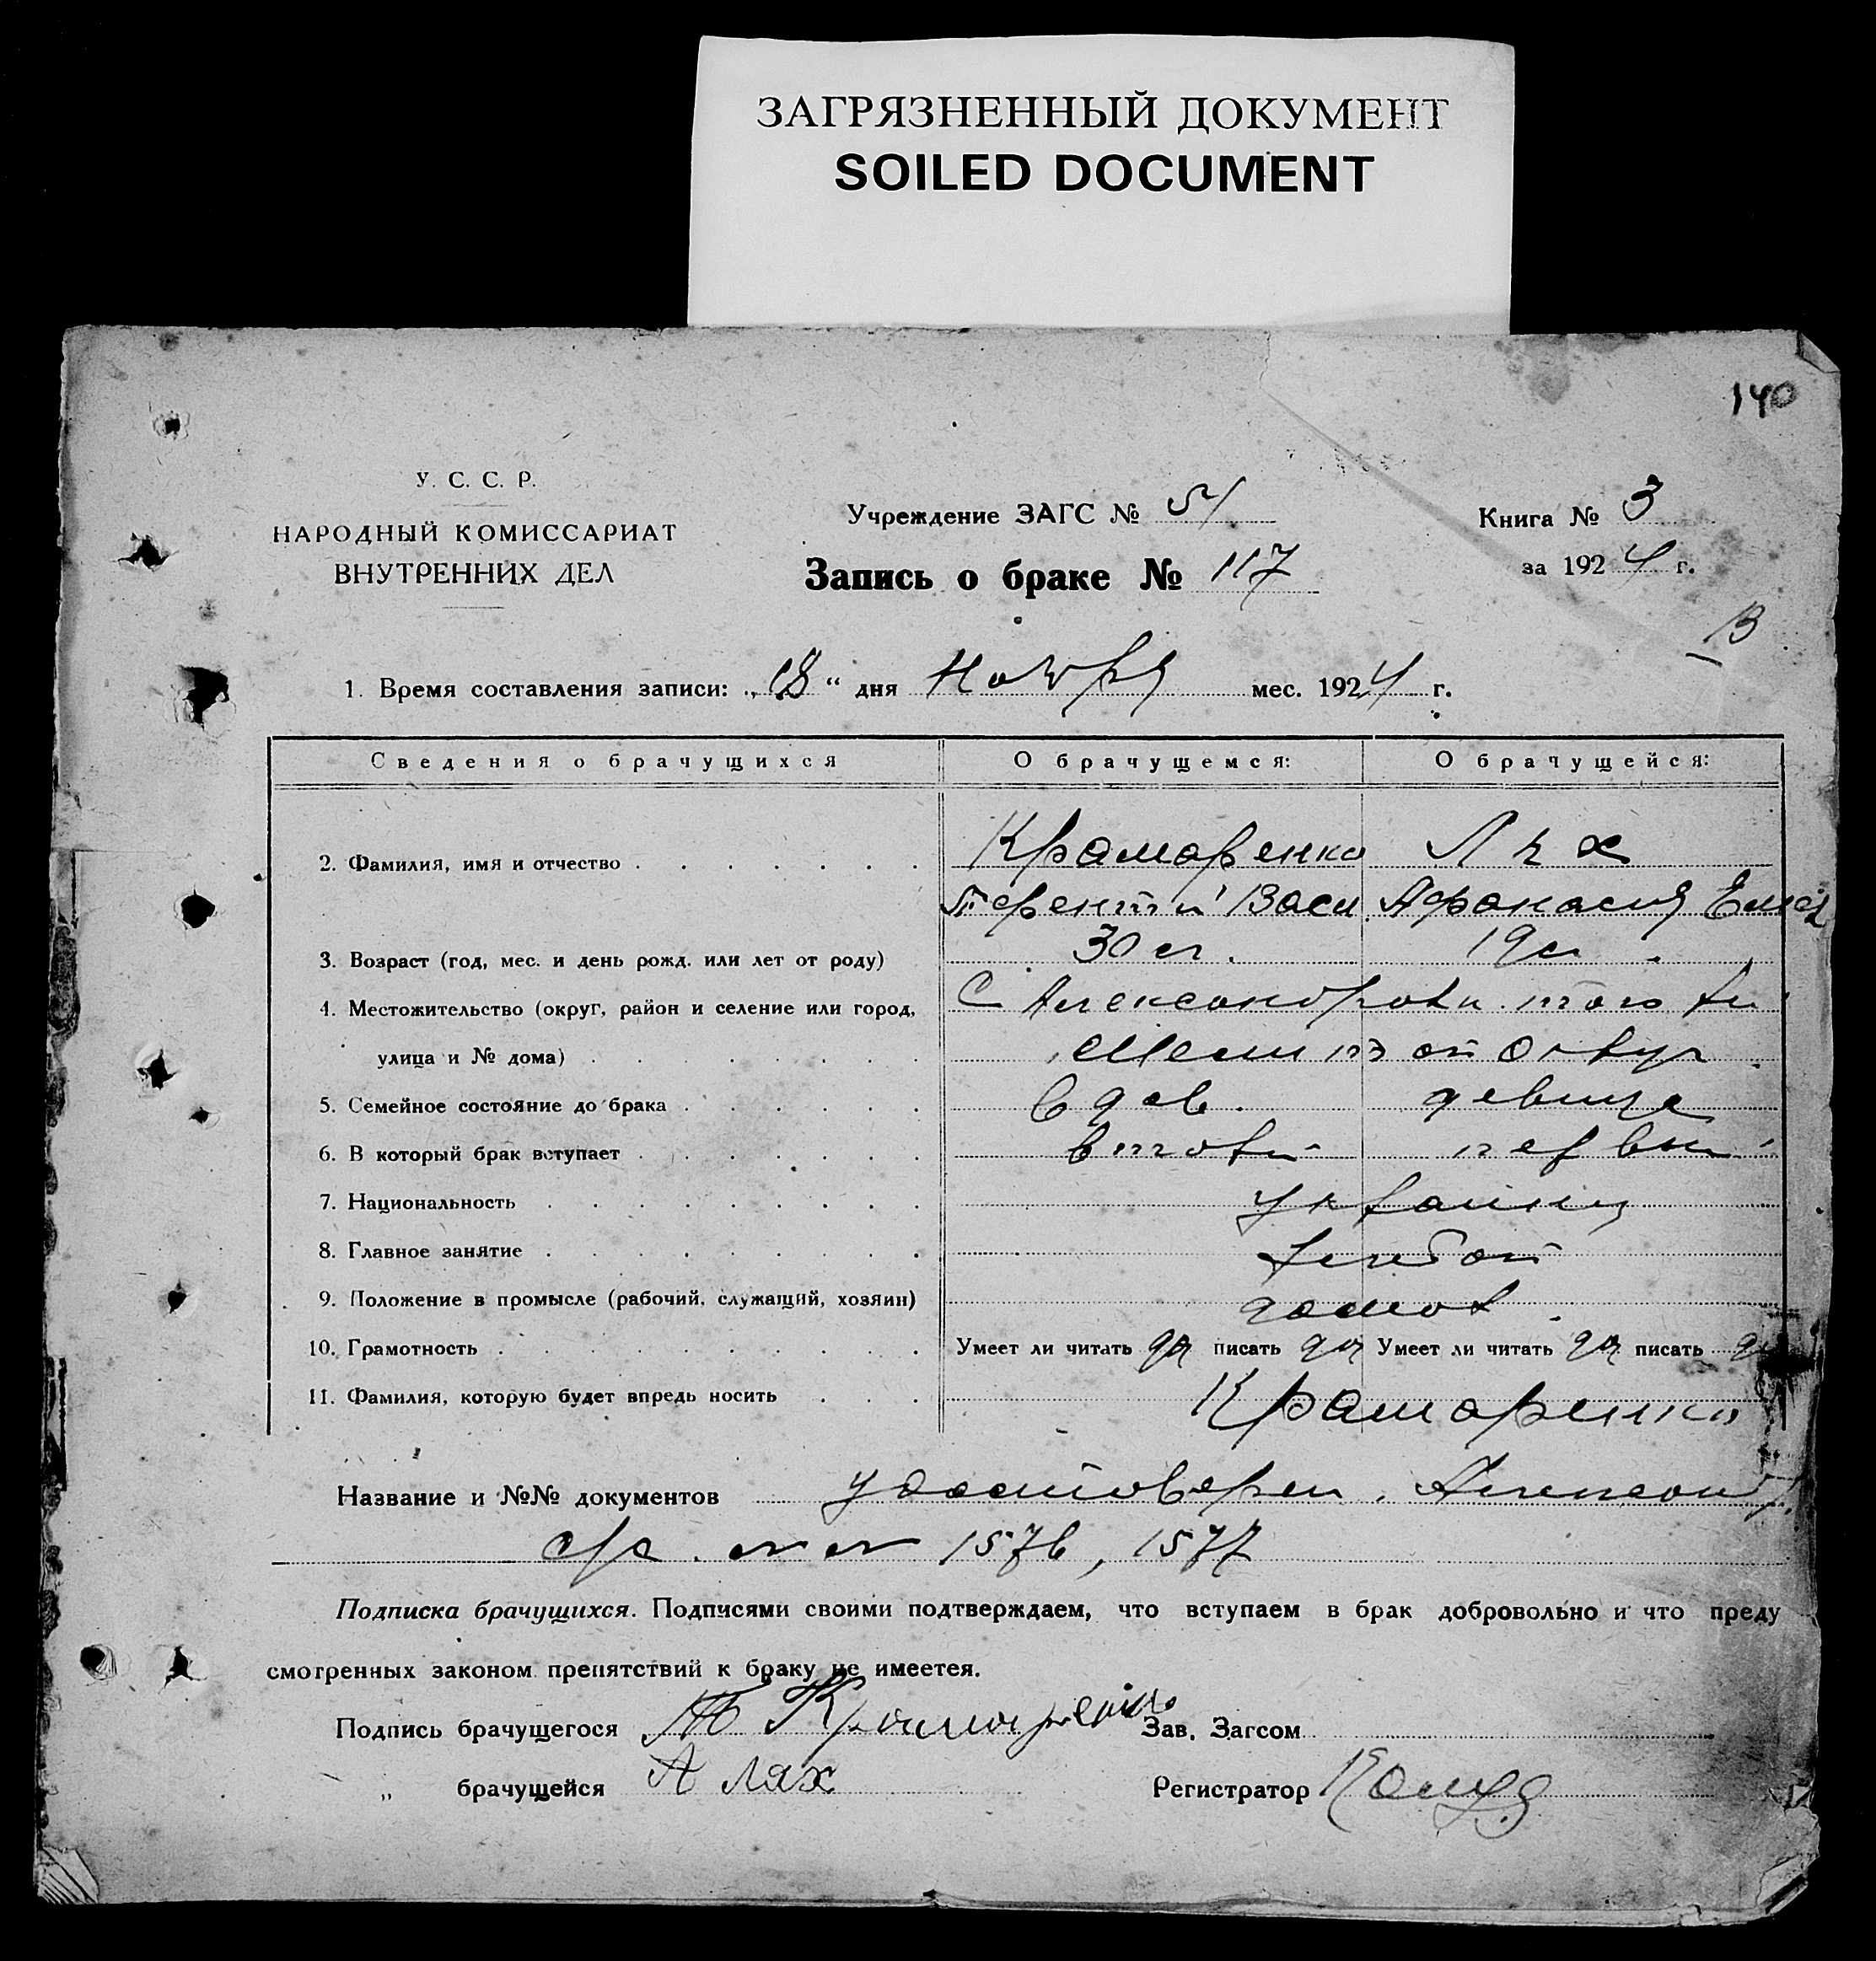 ЗАГРЯЗНЕННЫЙ ДОКУМЕНТ
SOILED DOCUMENT
140
У. С. С. Р.
НАРОДНЫЙ КОМИССАРИАТ
ВНУТРЕННИХ ДЕЛ
Учреждение ЗАГС № 51
Запись о браке № 117
Книга № 3
за 1924 г.
1. Время составления записи: „18“ дня Ноября мес. 1924 г.
Сведения о брачущихся О брачущемся: О брачущейся:
2. Фамилия, имя и отчество Крамаренко Лях
Терентий Васи Афанасия
3. Возраст (год, мес. и день рожд. или лет от роду) 30 л. 19 л.
4. Местожительство (округ, район и селение или город, С Александровки того же
улица и № дома)
5. Семейное состояние до брака вдов. девица
6. В который брак вступает второй первый
7. Национальность украинц
8. Главное занятие хлебоп
9. Положение в промысле (рабочий, служащий, хозяин) домох
10. Грамотность Умеет ли читать да писать да Умеет ли читать да писать да
11. Фамилия, которую будет впредь носить Крамаренко
Название и №№ документов удостоверен. Александр.
с/р 1576, 1577
Подписка брачущихся. Подписями своими подтверждаем, что вступаем в брак добровольно и что преду
смотренных законом препятствий к браку не имеется.
Подпись брачущегося Т Крамаренко Зав. Загсом
„ брачущейся А Лях Регистратор